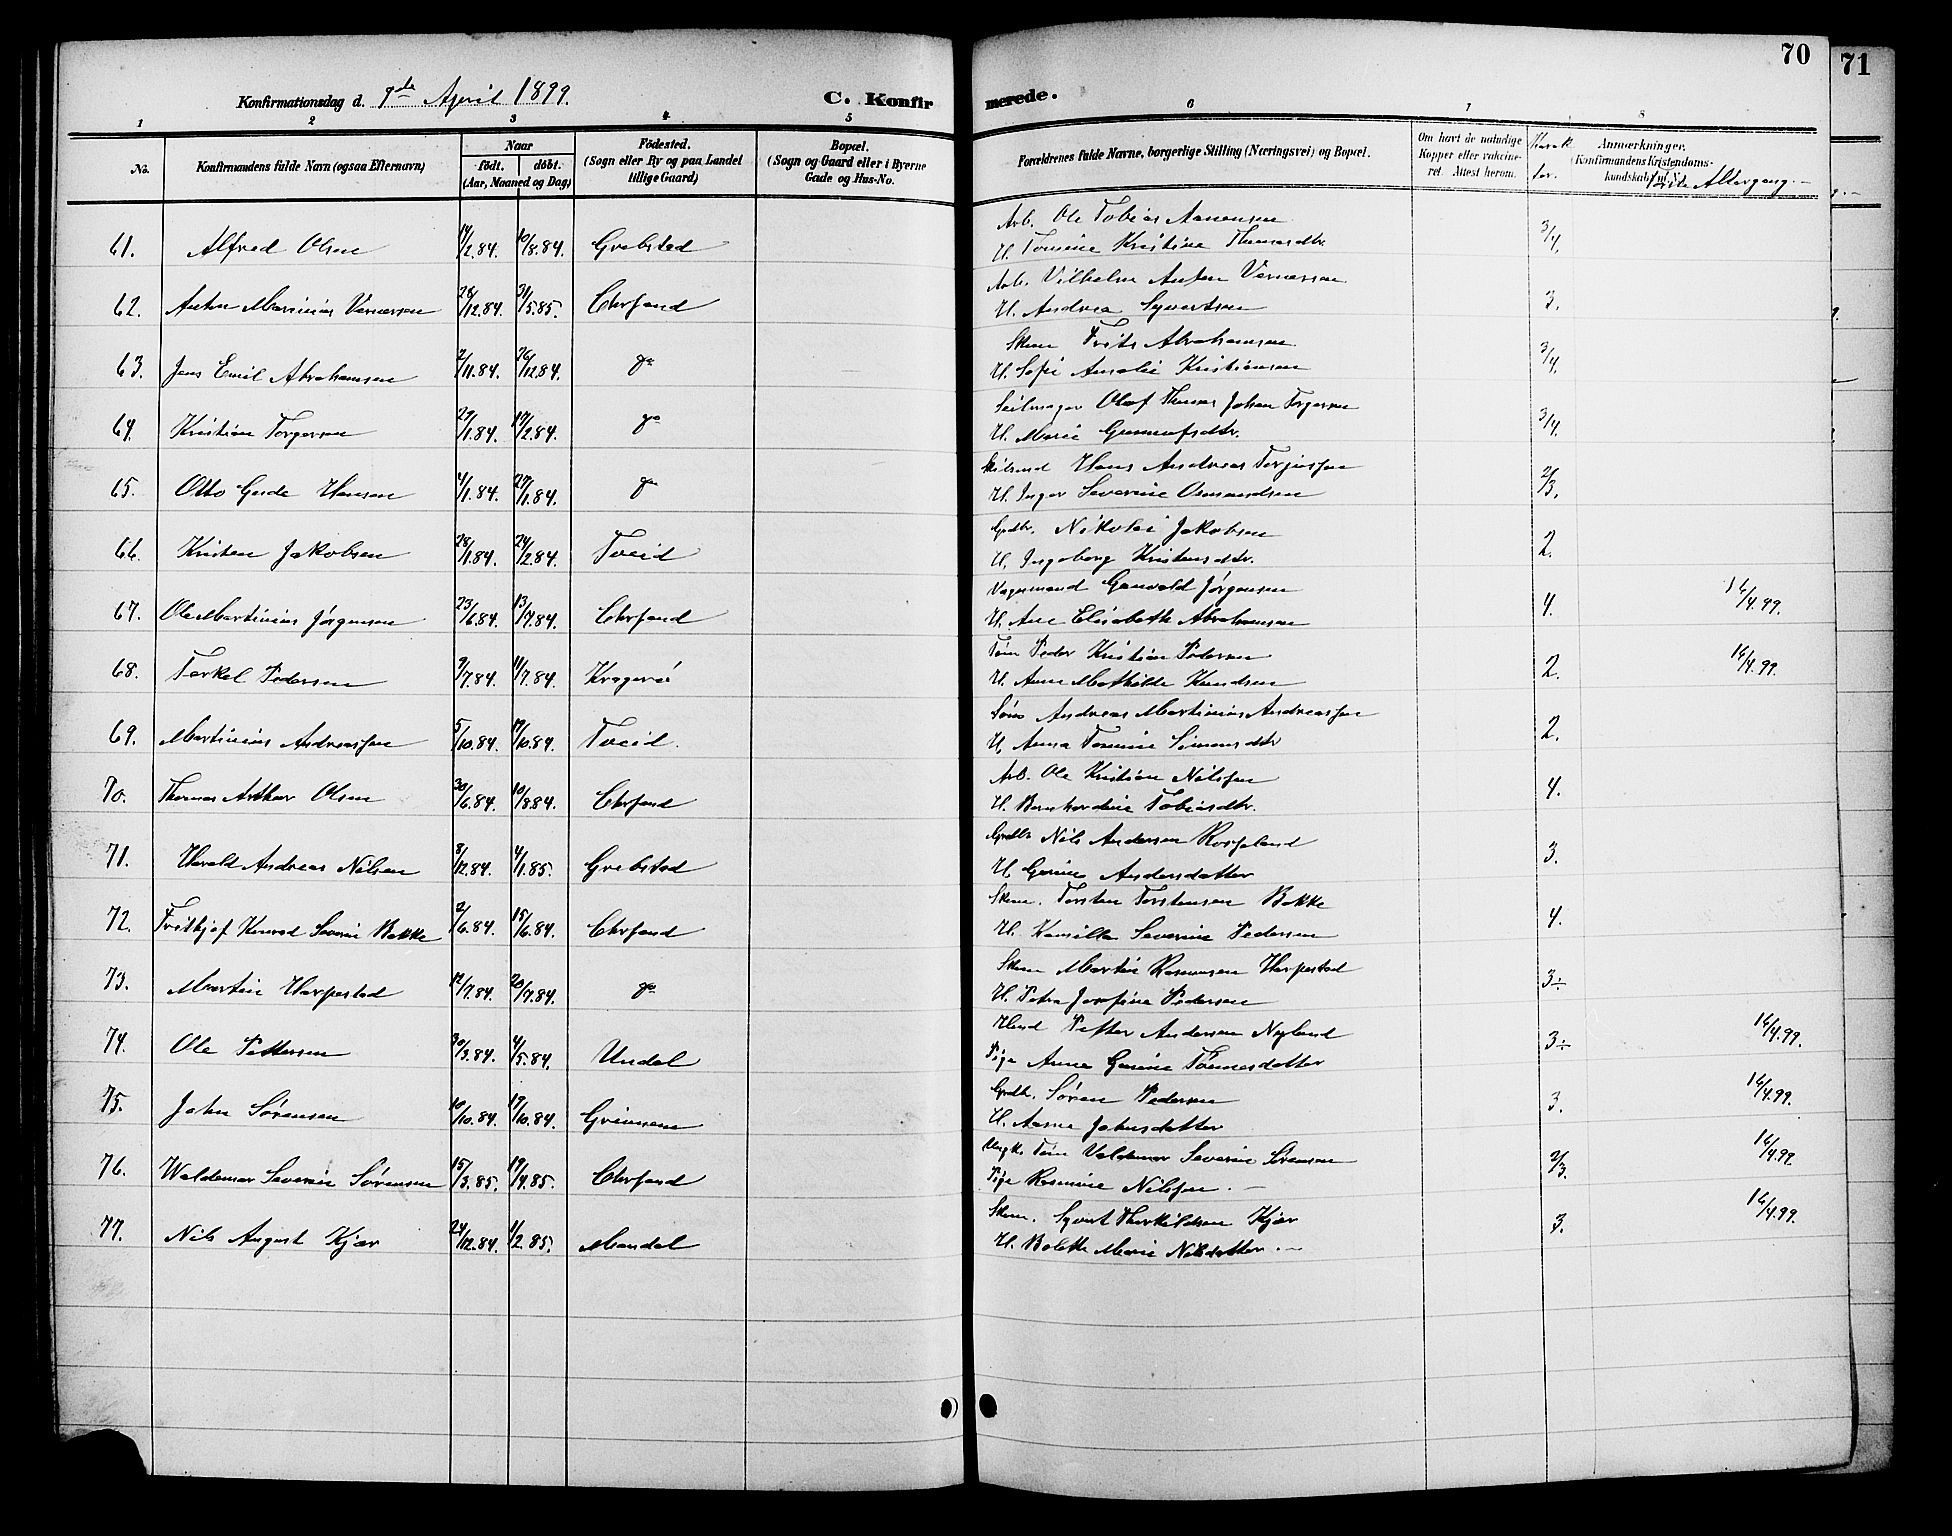 70
71
Konfirmationsdag d. 9de April 1899.
C. Konfirmerede.
1 2 3 4 5 6 7 8
No.
Konfirmandens fulde Navn (ogsaa Efternavn)
Naar
födt. döbt.
(Aar, Maaned og Dag)
Födested.
(Sogn eller By og paa Landet
tillige Gaard)
Bopæl.
(Sogn og Gaard eller i Byerne
Gade og Hus-No.
Forældrenes fulde Navne, borgerlige Stilling (Næringsvei) og Bopæl.
Om havt de naturlige
Kopper eller vakcineret. Attest herom.
Karakter.
Anmærkninger.
(Konfirmandens Kristendomskundskab m. v.)
Altergang.
61. Alfred Olsen 14/2.84. 10/8.84. Grebstad Arb. Ole Tobias Aanensen 3/4.
H. Tomine Kristine Thomasdtr.
62. Anton Marinius Vernersen 28/12.84. 31/5.85. Chrsand Arb. Vilhelm Anton Vernersen 3.
H. Andrea Syvertsen
63. Jens Emil Abrahamsen 2/11.84. 26/12.84. do Skom. Frits Abrahamsen 3/4.
H. Sofie Amalie Kristiansen
64. Kristian Torgersen 27/1.84. 17/2.84. do Seilmager Olaf Thomas Johan Torgersen 3/4.
H. Marie Gunnufsdtr.
65. Otto Gerde Hansen 4/1.84. 27/1.84. do Hans Andreas Terjussen 2/3.
H. Inger Severine Osmundsen
66. Kristen Jakobsen 28/1.84. 24/2.84. Tveid Grdbr. Nikolai Jakobsen 2.
H. Ingeborg Kristensdtr.
67. Ole Martinius Jørgensen 23/6.84. 13/7.84. Chrsand Vognmand Gunvald Jørgensen 4. 16/4.99.
H. Ane Elisabeth Abrahamsen
68. Terkel Pedersen 9/7.84. 11/7.84. Kragerö Töm Peder Kristian Pedersen 2. 16/4.99.
H. Anne Mathilde Knudsen
69. Martinius Andreassen 5/10.84. 17/10.84. Tveid. Söm Andreas Martinius Andreassen 2.
H. Anna Tomine Simonsdtr
70. Thomas Arthur Olsen 30/6.84. 10/8.84. Chrsand Arb. Ole Kristian Nilssen 4.
H. Bernhardine Tobiasdtr.
71. Harald Andreas Nilsen 8/12.84. 4/1.85. Grebstad Grdbr Nils Andersen Rosseland 3.
H. Gurine Andersdatter
72. Fridhjof Konrad Severin Bakke 2/6.84. 15/6.84. Chrsand Skom. Torsten Torstensen Bakke 4.
H. Kamilla Severine Pedersen
73. Martin Harpestad 12/7.84. 20/7.84. do Skom Martin Rasmussen Harpestad 3÷
H. Petra Josefine Pedersen
74. Ole Pettersen 30/3.84. 4/5.84. Undal Petter Andersen Nyland 3÷ 16/4.99.
Pige Anne Gurine Tönnesdatter
75. John Sørensen 10/10.84. 19/10.84. Grimnem Grdbr. Sören Pedersen 3. 16/4.99.
H. Aasne Johnsdatter
76. Waldemar Severin Sörensen 15/3.85. 19/4.85. Chrsand Ungk. Töm Valdemar Severin Sörensen 2/3. 16/4.99.
Pige Rasmine Nilssen. —
77. Nils August Kjær 24/12.84. 1/2.85. Mandal Skom. Syvert Therkildsen Kjær 3. 16/4.99.
H. Bolette Marie Nilsdatter. —